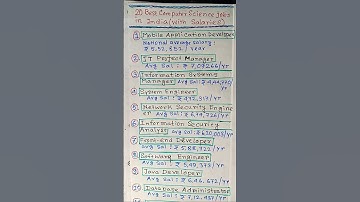 20 Best Computer Science Jobs
in India (with Salaries)
① Mobile Application Developer
National average salary:
₹ 5,52,852 / year
② IT Project Manager
Avg Sal: ₹ 7,09,266/yr
③ Information Systems
Manager Avg Sal: ₹ 4,44,770/yr
④ System Engineer
Avg Sal: ₹ 4,92,317/yr
⑤ Network Security Engine
er Avg Sal: ₹ 6,79,726/yr
⑥ Information Security
Analyst Avg Sal: ₹ 620,005/yr
⑦ Front-end Developer
Avg Sal: ₹ 5,88,722/yr
⑧ Software Engineer
Avg Sal: ₹ 5,49,375/yr
⑨ Java Developer
Avg Sal: ₹ 6,46,672/yr
⑩ Database Administrator
Avg Sal: ₹ 7,12,437/yr